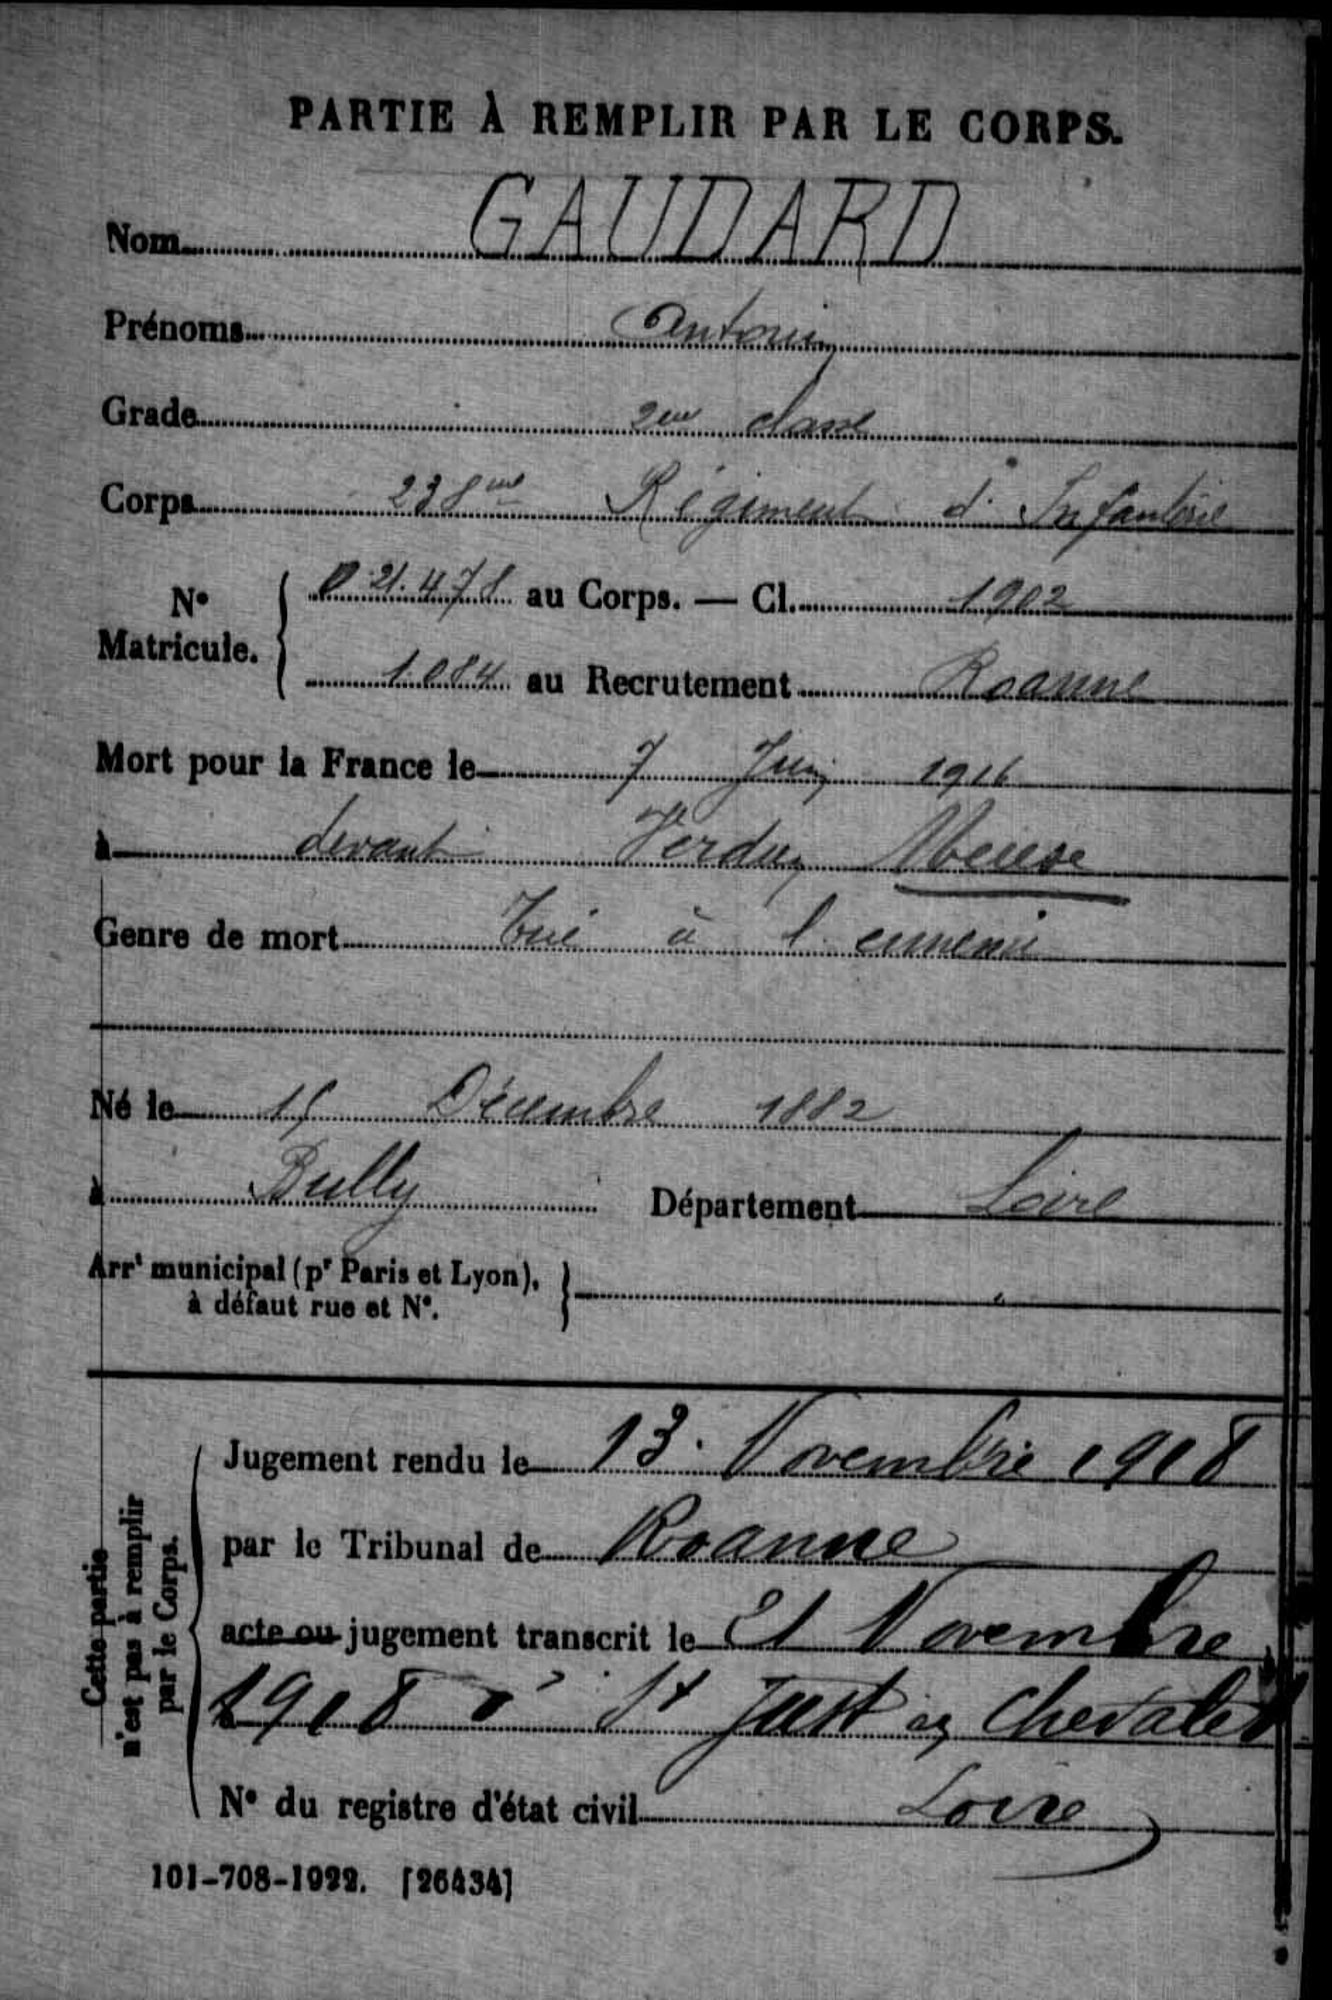 PARTIE À REMPLIR PAR LE CORPS.
Nom GAUDARD
Prénoms Antonin
Grade 2me classe
Corps 238me Régiment d'Infanterie
N° Matricule. 021.478 au Corps. — Cl. 1902
1.084 au Recrutement Roanne
Mort pour la France le 7 Juin 1916
à devant Verdun Meuse
Genre de mort Tué à l'ennemi
Né le 15 Décembre 1882
à Bully Département Loire
Arrt municipal (pr Paris et Lyon), à défaut rue et N°. "
Cette partie n'est pas à remplir par le Corps.
Jugement rendu le 13 Novembre 1918
par le Tribunal de Roanne
acte ou jugement transcrit le 21 Novembre
1918 à St Just en Chevalet
N° du registre d'état civil Loire
101-708-1922. [26434]